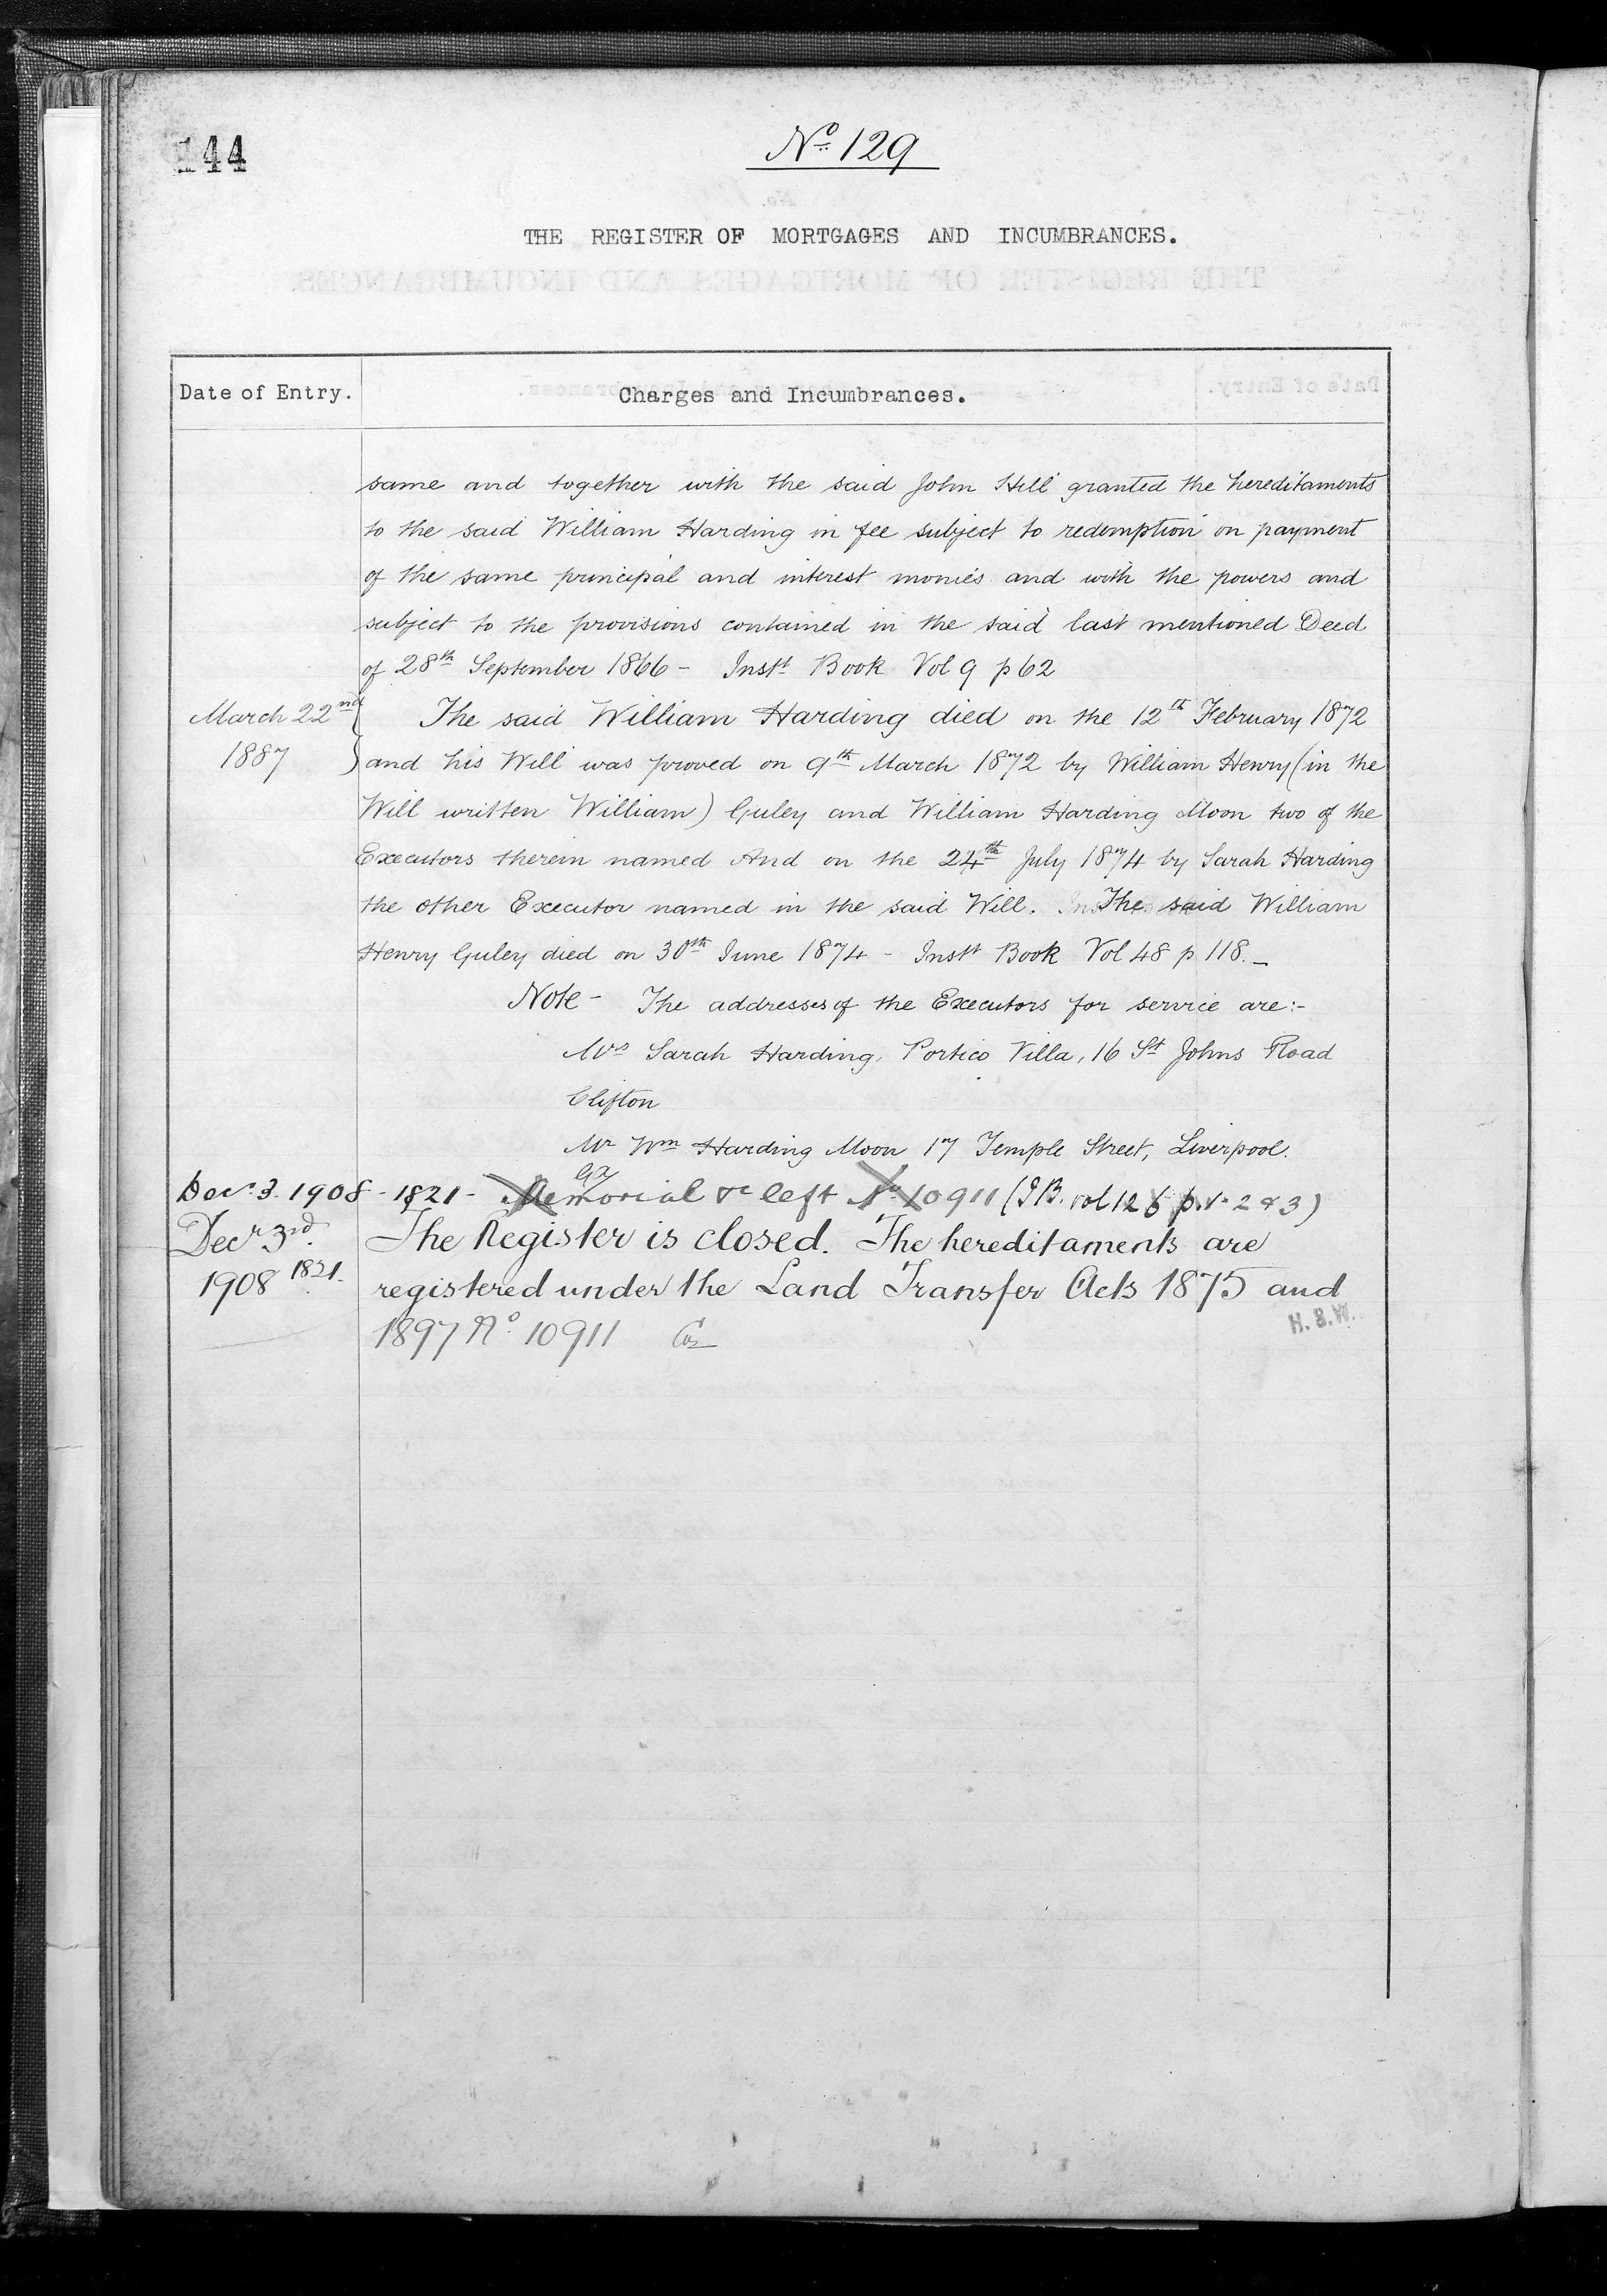 144
No. 129
THE REGISTER OF MORTGAGES AND INCUMBRANCES.
Date of Entry.
Charges and Incumbrances.
same and together with the said John Hill granted the hereditaments
to the said William Harding in fee subject to redemption on payment
of the same principal and interest monies and with the powers and
subject to the provisions contained in the said last mentioned Deed
of 28th September 1866 - Instt Book Vol 9 p 62
March 22nd
1887
The said William Harding died on the 12th February 1872
and his Will was proved on 9th March 1872 by William Henry (in the
Will written William) Guley and William Harding Moon two of the
Executors therein named And on the 24th July 1874 by Sarah Harding
the other Executor named in the said Will. The said William
Henry Guley died on 30th June 1874 - Instt Book Vol 48 p 118. -
Note - The addresses of the Executors for service are:-
Mrs Sarah Harding, Portico Villa, 16 St Johns Road
Clifton
Mr Wm Harding Moon 17 Temple Street, Liverpool.
Decr 3. 1908 - 1821 - Memorial &c left No 10911 (I B. vol 126 p. 2 & 3)
Decr 3rd
1908 1821.
The Register is closed. The hereditaments are
registered under the Land Transfer Acts 1875 and
1897 No. 10911
H. 8. W.